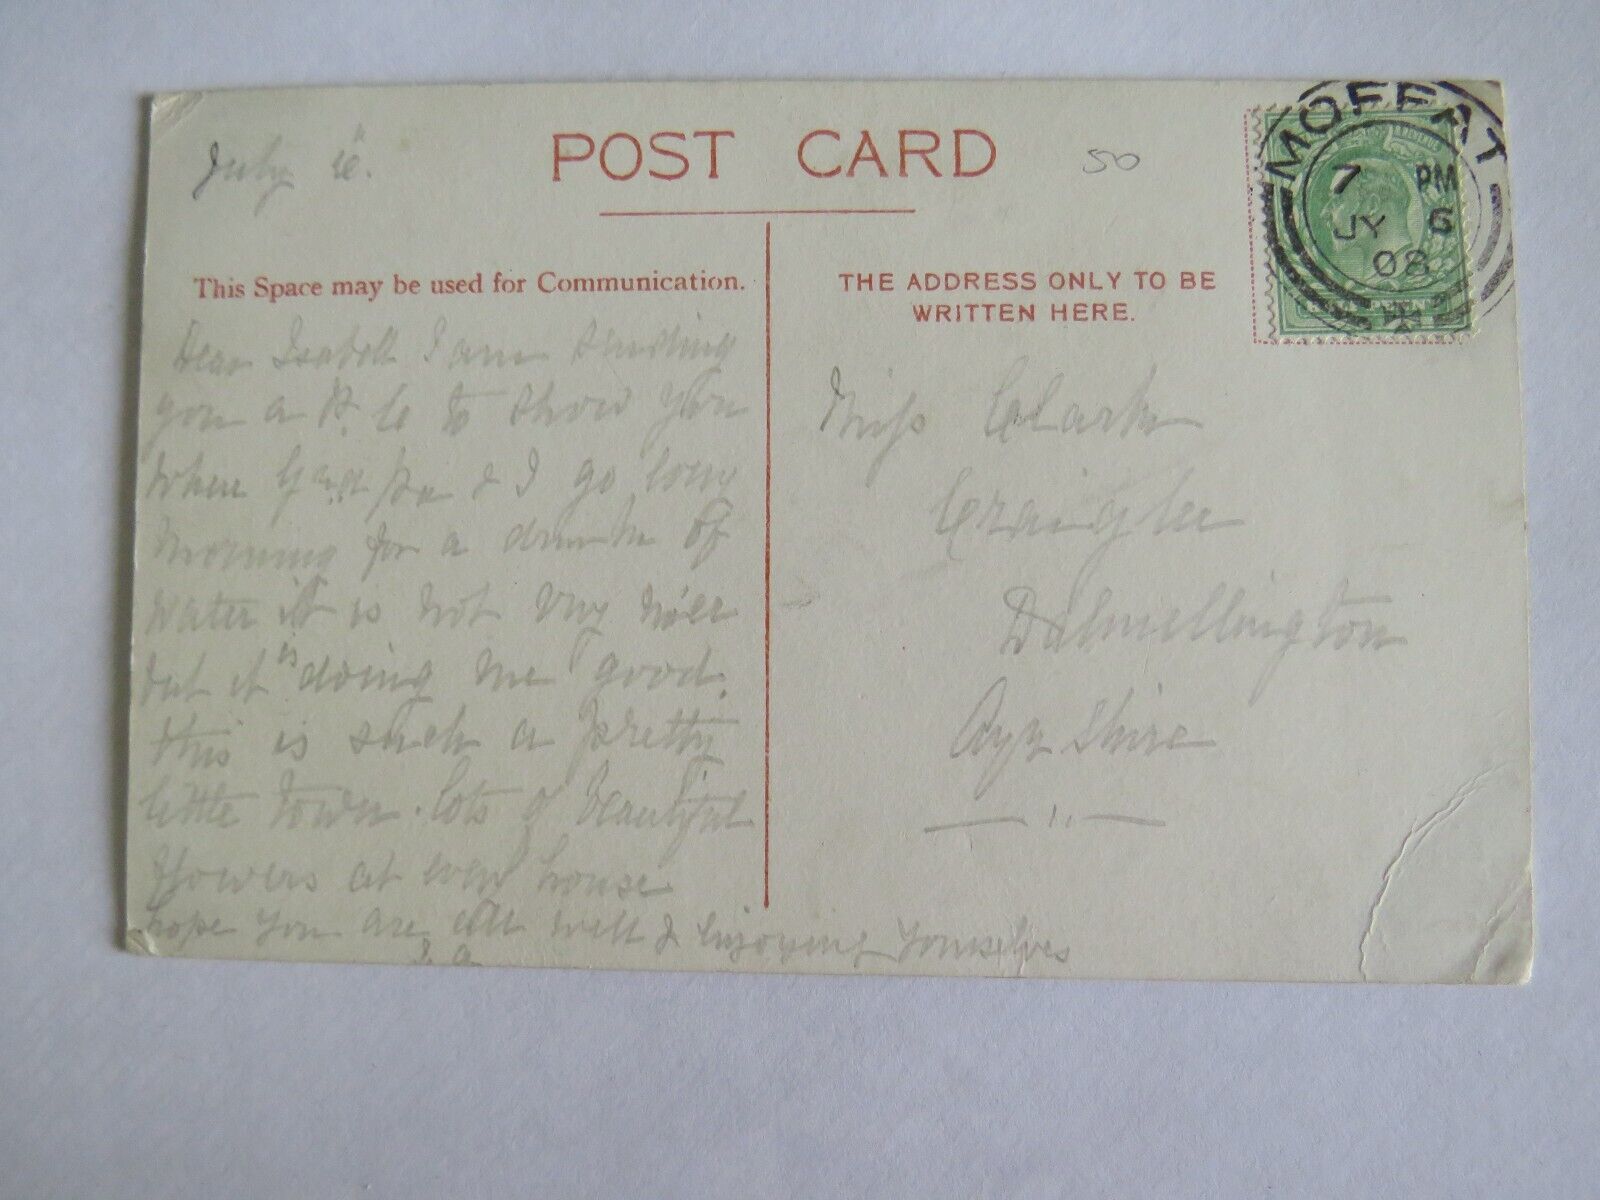 July 6th.
POST CARD
50
MOFFAT
7 PM
JY 6
08
This Space may be used for Communication.
THE ADDRESS ONLY TO BE
WRITTEN HERE.
Dear Isabell I am sending
you a P. C to show you
where Grd pa & I go
morning for a drink of
water it is not very nice
but it is doing me good.
this is such a pretty
little town. lots of beautiful
flowers at every house
hope you are all well & enjoying yourselves
Miss Clark
Craiglee
Dalmellington
Ayr Shire